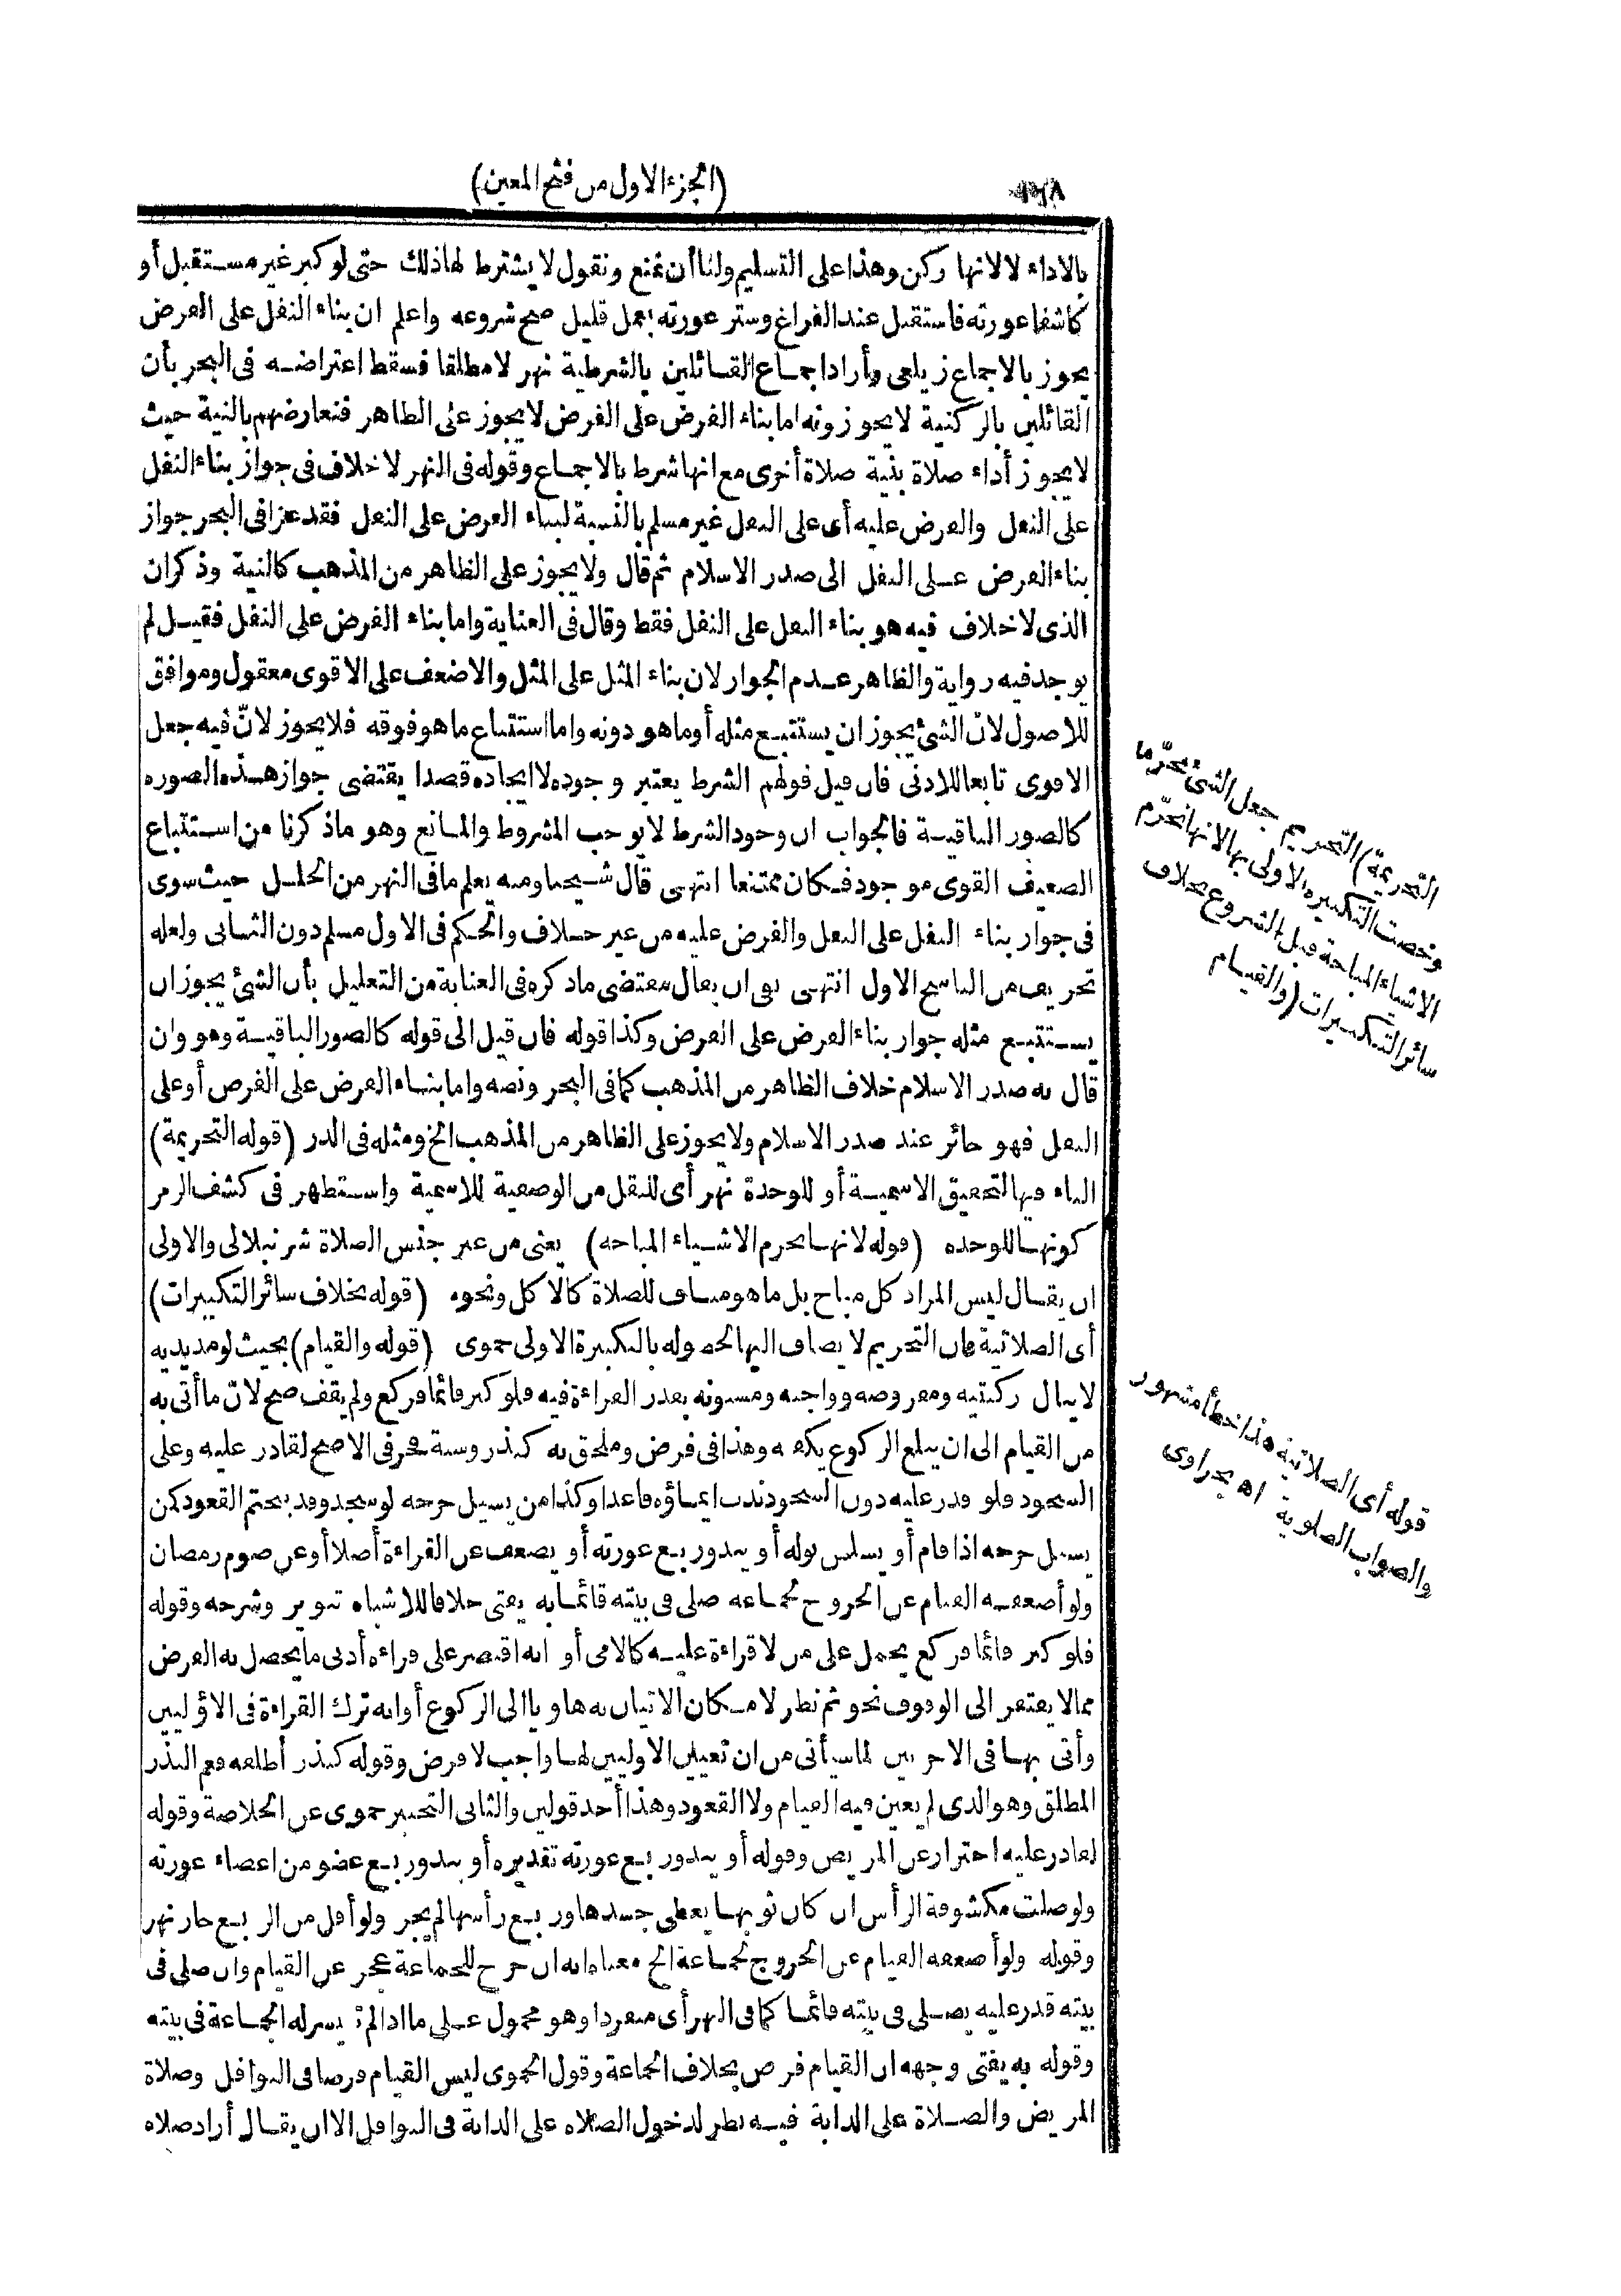 (الجزء الاول من فتح المعين)
بالاداء لا لانها ركن وهذا على التسليم ولنا أن نمنع ونقول لا يشترط لها ذلك حتى لو كبر غير مستقبل أو
كاشفا عورته فاستقبل عند الفراغ وستر عورته بعمل قليل صح شروعه واعلم ان بناء النفل على الفرض
يجوز بالاجماع زيلعى وأراد اجماع القائلين بالشرطية نهر لا مطلقا فسقط اعتراضه فى البحر بأن
القائلين بالركنية لا يجوزونه اما بناء الفرض على الفرض لا يجوز على الظاهر فنعارضهم بالنية حيث
لا يجوز أداء صلاة بنية صلاة أخرى مع انها شرط بالاجماع وقوله فى النهر لا خلاف فى جواز بناء النفل
على النفل والفرض عليه أى على النفل غير مسلم بالنسبة لبناء الفرض على النفل فقد عزا فى البحر جواز
بناء الفرض على النفل الى صدر الاسلام ثم قال ولا يجوز على الظاهر من المذهب كالنية وذكر ان
الذى لا خلاف فيه هو بناء النفل على النفل فقط وقال فى العناية واما بناء الفرض على النفل فقيل لم
يوجد فيه رواية والظاهر عدم الجواز لان بناء المثل على المثل والاضعف على الاقوى معقول وموافق
للاصول لانّ الشئ يجوز ان يستتبع مثله أو ما هو دونه واما استتباع ما هو فوقه فلا يجوز لانّ فيه جعل
الاقوى تابعا للادنى فان قيل قولهم الشرط يعتبر وجوده لا ايجاده قصدا يقتضى جواز هذه الصورة
كالصور الباقية فالجواب ان وجود الشرط لا يوجب المشروط والمانع وهو ما ذكرنا من استتباع
الضعيف القوى موجود فكان ممتنعا انتهى قال شيخنا ومنه يعلم ما فى النهر من الخلل حيث سوى
فى جواز بناء النفل على النفل والفرض عليه من غير خلاف والحكم فى الاول مسلم دون الثانى ولعله
تحريف من الناسخ الاول انتهى بقى ان يقال مقتضى ما ذكره فى العناية من التعليل بأن الشئ يجوز ان
يستتبع مثله جواز بناء الفرض على الفرض وكذا قوله فان قيل الى قوله كالصور الباقية وهو وان
قال به صدر الاسلام خلاف الظاهر من المذهب كما فى البحر ونصه واما بناء الفرض على الفرض أو على
النفل فهو جائز عند صدر الاسلام ولا يجوز على الظاهر من المذهب الخ ومثله فى الدر (قوله التحريمة)
التاء فيها لتحقيق الاسمية أو للوحدة نهر أى للنقل من الوصفية للاسمية واستظهر فى كشف الرمز
كونها للوحدة (قوله لانها تحرم الاشياء المباحة) يعنى من غير جنس الصلاة شرنبلالى والاولى
ان يقال ليس المراد كل مباح بل ما هو مناف للصلاة كالاكل ونحوه (قوله بخلاف سائر التكبيرات)
أى الصلاتية فان التحريم لا يضاف اليها لحصوله بالتكبيرة الاولى حموى (قوله والقيام) بحيث لو مد يديه
لا ينال ركبتيه ومفروضه وواجبه ومسنونه بقدر القراءة فيه فلو كبر قائما فركع ولم يقف صح لانّ ما أتى به
من القيام الى ان يبلغ الركوع يكفيه وهذا فى فرض وملحق به كنذر وسنة فجر فى الاصح لقادر عليه وعلى
السجود فلو قدر عليه دون السجود ندب ايماؤه قاعدا وكذا من يسيل جرحه لو سجد وقد يتحتم القعود كمن
يسيل جرحه اذا قام أو يسلس بوله أو يبدو ربع عورته أو يضعف عن القراءة أصلا أو عن صوم رمضان
ولو أضعفه القيام عن الخروج لجماعة صلى فى بيته قائما به يفتى خلافا للاشباه تنوير وشرحه وقوله
فلو كبر قائما فركع يحمل على من لا قراءة عليه كالامى أو انه اقتصر على قراءة أدنى ما يحصل به الفرض
مما لا يفتقر الى الوقوف نحو ثم نظر لامكان الاتيان به هاويا الى الركوع أو انه ترك القراءة فى الاوليين
وأتى بها فى الاخريين لما سيأتى من ان تعيين الاوليين لها واجب لا فرض وقوله كنذر أطلقه فعم النذر
المطلق وهو الذى لم يعين فيه القيام ولا القعود وهذا أحد قولين والثانى التخيير حموى عن الخلاصة وقوله
لقادر عليه احتراز عن المريض وقوله أو يبدو ربع عورته تقديره أو يبدو ربع عضو من اعضاء عورته
ولو صلت مكشوفة الرأس ان كان ثوبها يغطى جسدها وربع رأسها لم يجز ولو أقل من الربع جاز نهر
وقوله ولو أضعفه القيام عن الخروج لجماعة الخ معناه انه ان خرج للجماعة عجز عن القيام وان صلى فى
بيته قدر عليه يصلى فى بيته قائما كما فى النهر أى منفردا وهو محمول على ما اذا لم تيسر له الجماعة فى بيته
وقوله به يفتى وجهه ان القيام فرض بخلاف الجماعة وقول الحموى ليس القيام فرضا فى النوافل وصلاة
المريض والصلاة على الدابة فيه نظر لدخول الصلاة على الدابة فى النوافل الا ان يقال أراد صلاة
التحريمة) التحريم جعل الشئ محرّما
وخصت التكبيرة الاولى بها لانها تحرّم
الاشياء المباحة قبل الشروع بخلاف
سائر التكبيرات (والقيام
قوله أى الصلاتية هذا خطأ مشهور
والصواب الصلوية اه بحراوى